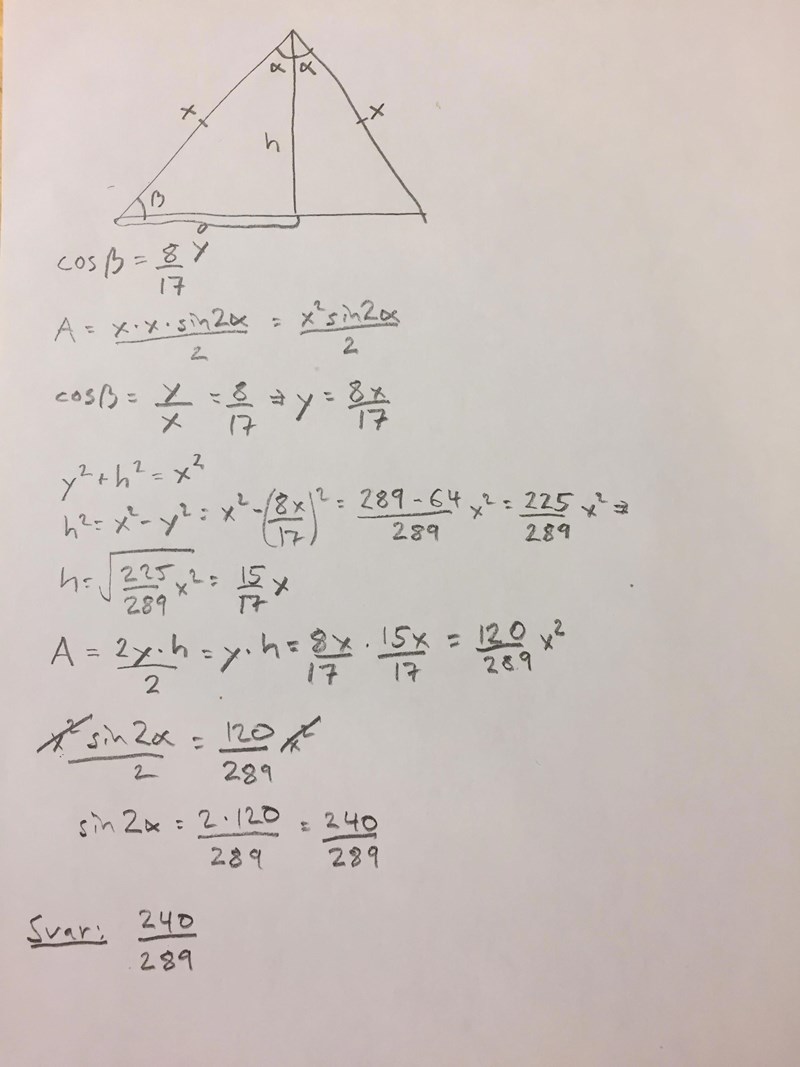 α α
x x
h
β
y
cos β = 8/17
A = x·x·sin2α/2 = x² sin2α/2
cos β = y/x = 8/17 ⇒ y = 8x/17
y² + h² = x²
h² = x² - y² = x² - (8x/17)² = 289-64/289 x² = 225/289 x² ⇒
h = √225/289 x² = 15/17 x
A = 2y·h/2 = y·h = 8x/17 · 15x/17 = 120/289 x²
x² sin 2α/2 = 120/289 x²
sin 2α = 2·120/289 = 240/289
Svar: 240/289